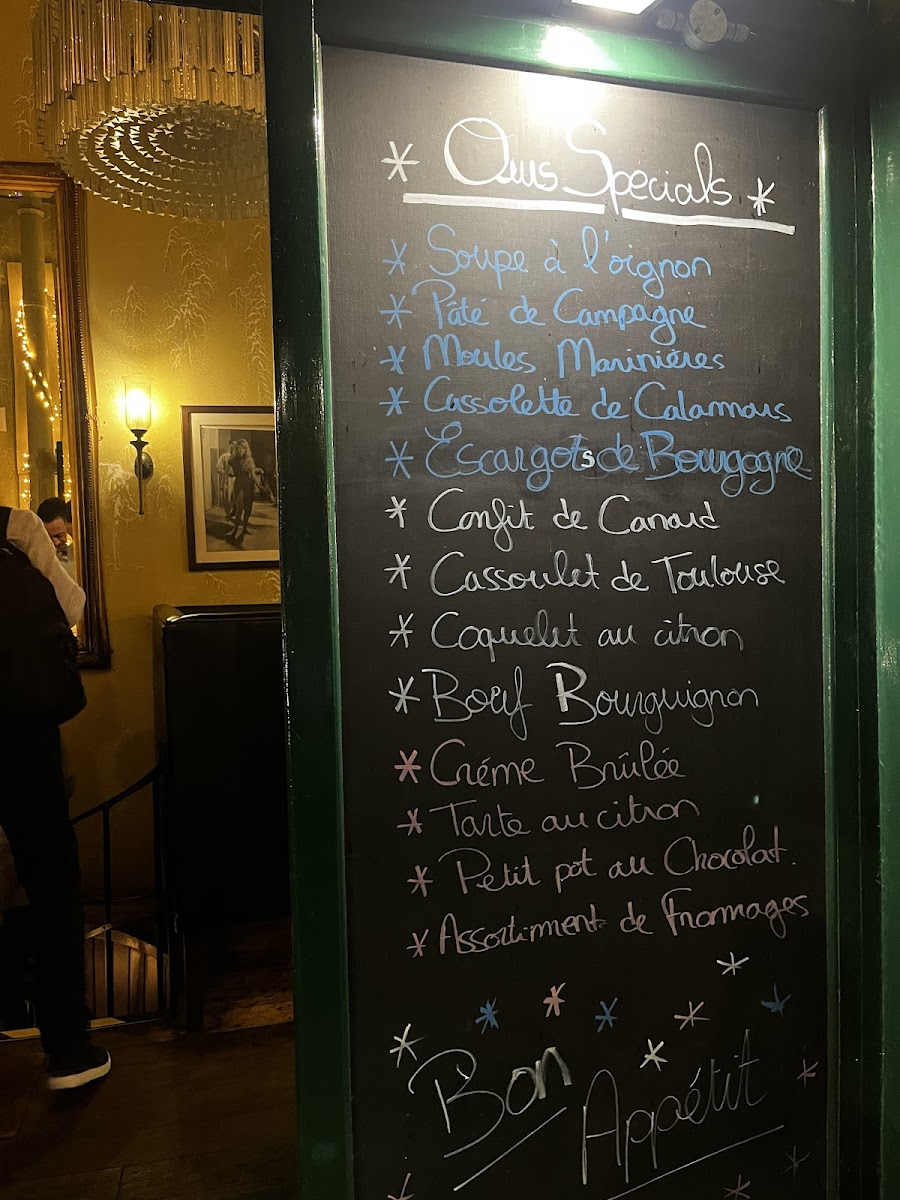 * Ours Specials *
* Soupe à l'oignon
* Pâté de Campagne
* Moules Marinières
* Cassolette de Calamars
* Escargots de Bourgogne
* Confit de Canard
* Cassoulet de Toulouse
* Coquelet au citron
* Boeuf Bourguignon
* Créme Brûlée
* Tarte au citron
* Petit pôt au Chocolat.
* Assortiment de Fromages
Bon Appétit